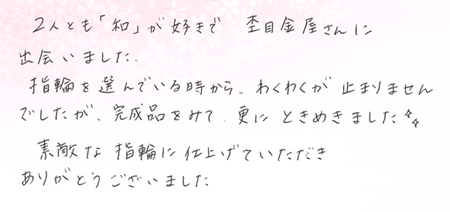 2人とも「和」が好きで 杢目金屋さんに
出会いました.
指輪を選んでいる時から、わくわくが止まりません
でしたが、完成品をみて、更にときめきました✧
素敵な指輪に仕上げていただき
ありがとうございました